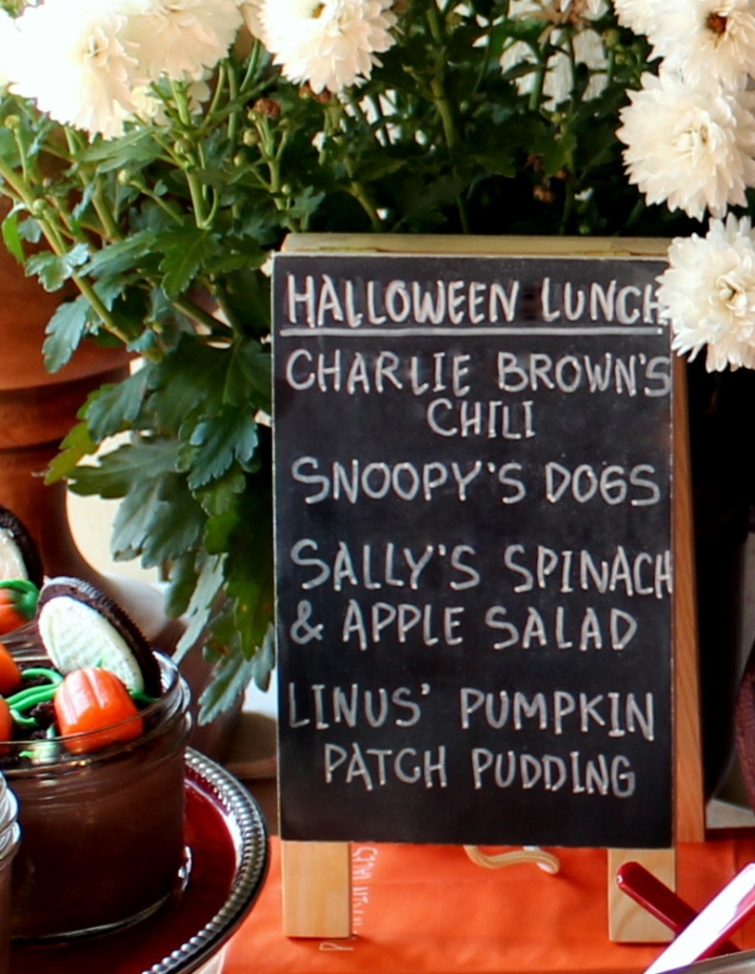 HALLOWEEN LUNCH
CHARLIE BROWN'S
CHILI
SNOOPY'S DOGS
SALLY'S SPINACH
& APPLE SALAD
LINUS' PUMPKIN
PATCH PUDDING